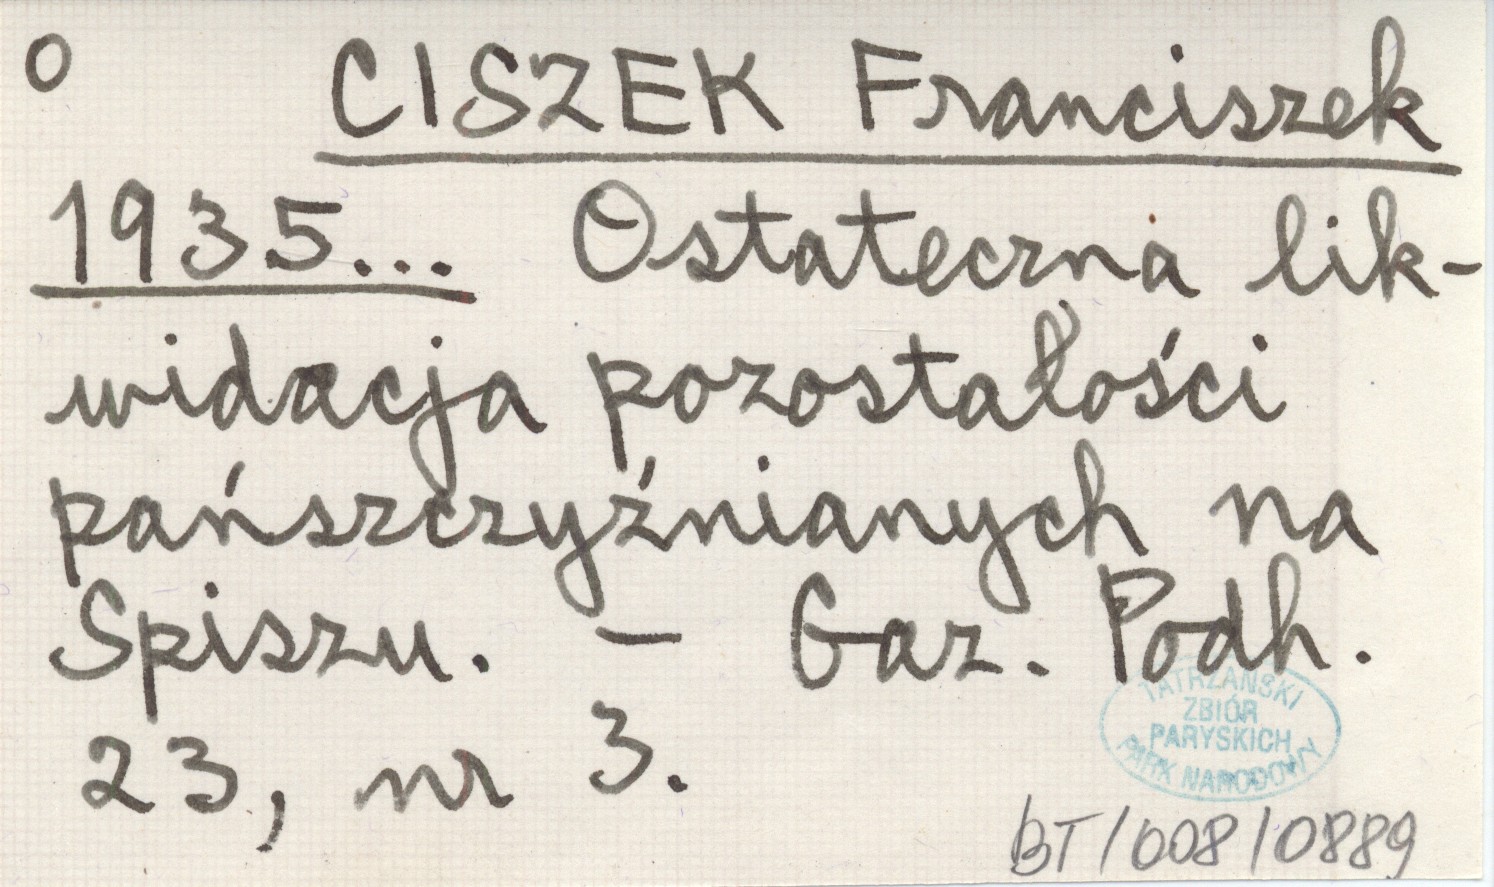 o CISZEK Franciszek
1935... Ostateczna lik-
widacja pozostałości
pańszczyźnianych na
Spiszu. – Gaz. Podh.
23, nr 3.
TATRZAŃSKI
ZBIÓR
PARYSKICH
PARK NARODOWY
BT/008/0889